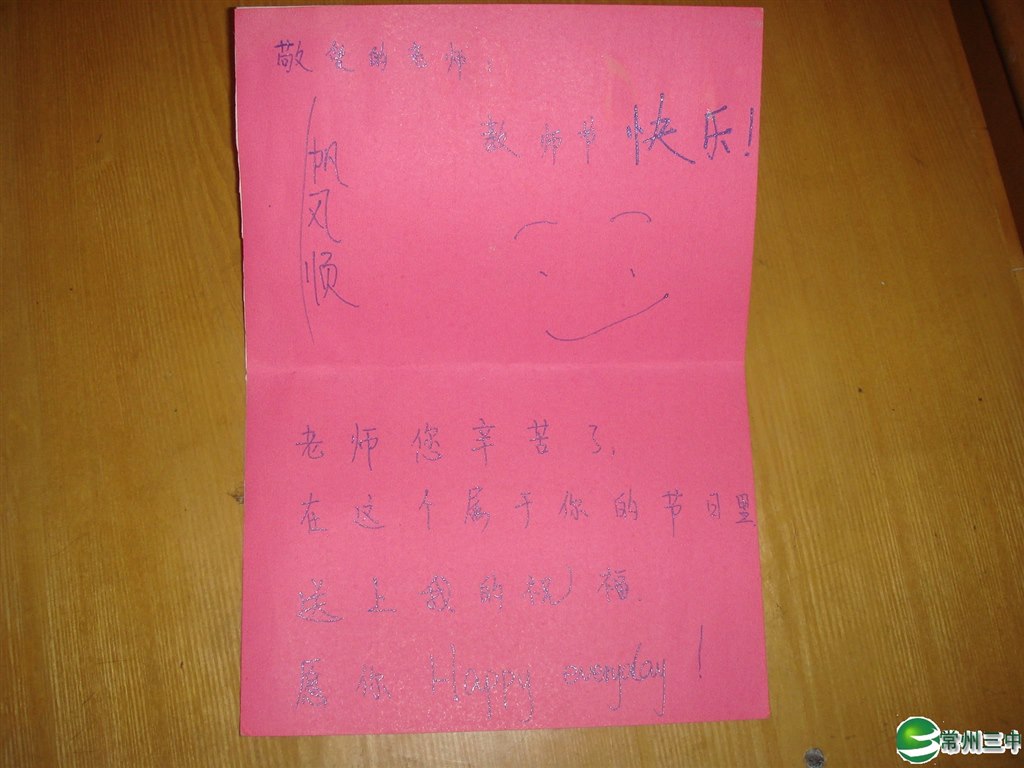 敬爱的老师：
教师节快乐！
一帆风顺
老师您辛苦了，
在这个属于你的节日里
送上我的祝福
愿你 Happy everyday！
常州三中